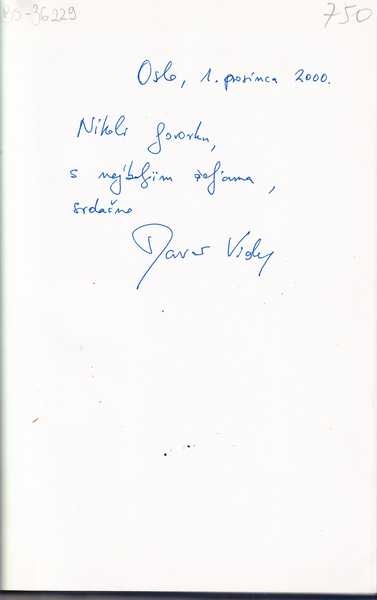 RS-36229
750
Oslo, 1. prosinca 2000.
Nikoli Govorku,
s najboljim željama,
srdačno
Davor Vidas